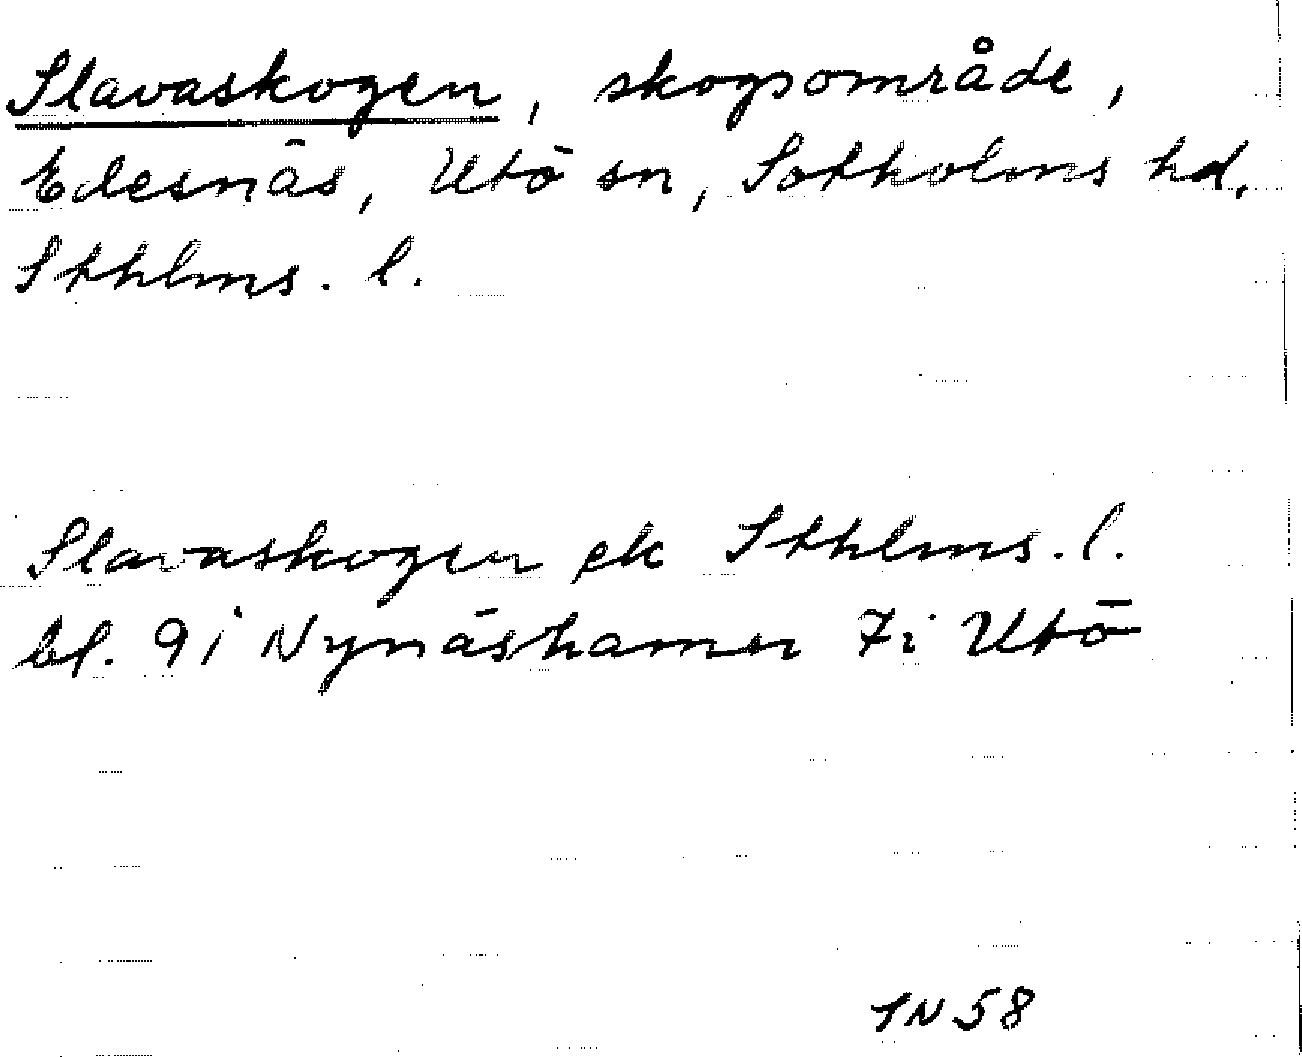 Slavaskogen, skogsområde,
Edesnäs, Utö sn, Sotholms hd,
Sthlms. l.
Slavaskogen ek Sthlms. l.
bl. 9 i Nynäshamn 7 i Utö
IN 58